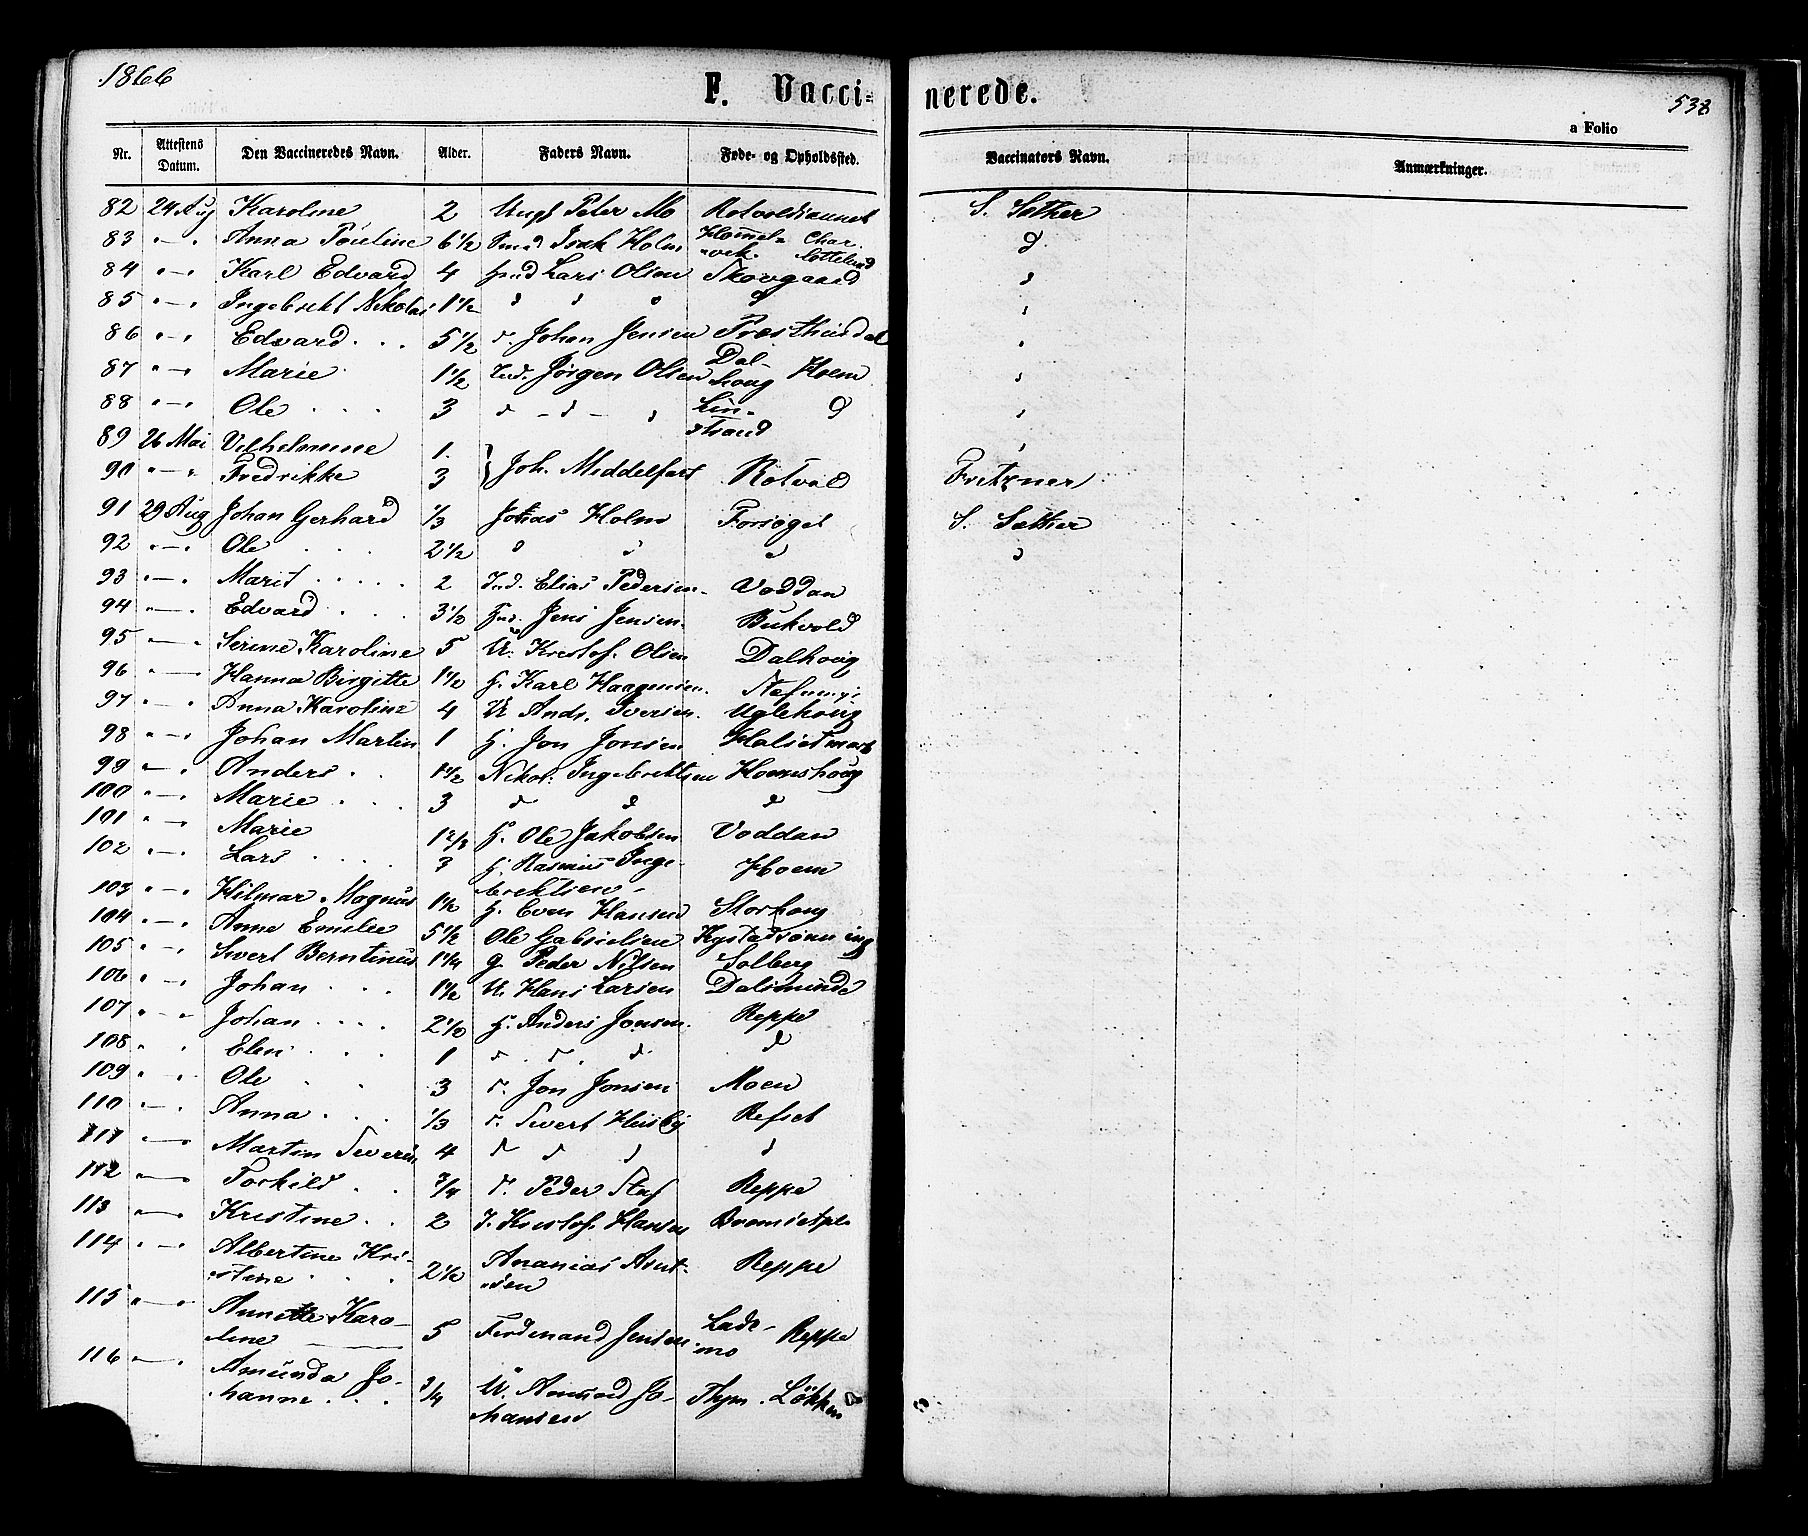 1866
F. Vacci=
nerede.
538
a Folio
Nr. Attestens Datum. Den Vaccineredes Navn. Alder. Faders Navn. Føde- og Opholdssted. Vaccinators Navn. Anmærkninger.
82 24 Aug Karoline 2 Ungk Peter Mo Rotvoldaunet S. Sæther
83 " — " Anna Pouline 6 1/2 Smed Isak Holm Hommel= vek. Char lottelund d
84 " — " Karl Edvard 4 Lars Olsen Skovgaard d
85 " — " Ingebrikt Nikolai 1 1/2 d d d d
86 " — " Edvard . . . 5 1/2 Johan Jensen Præsthusdal
87 " — " Marie 1 1/2 Ind. Jørgen Olsen Dal- houg Hoem
88 " — " Ole . . . . 3 d – d – d Lin= strand d
89 26 Mai Vilhelmine 1.
90 " — " Fredrikke 3 } Joh. Middelfart Rotvold Fritzner
91 29 Aug Johan Gerhard 1/3 Holm Forsøget S. Sæther
92 " — " Ole . . . 2 1/2 d d d d
93 " — " Marit . . . . . 2 Ind. Elias Pedersen Voddan
94 " — " Edvard . . . 3 1/2 Jens Jensen Bukvold
95 " — " Serine Karoline 5 U. Kristof. Olsen Dalhoug
96 " — " Hanna Birgitte 1 1/2 H. Karl Haagensen
97 " — " Anna Karoline 4 U. Andr. Iversen Uglehoug
98 " — " Johan Martin 1 H. Jon Jonsen
99 " — " Anders . . 1 1/2 Nikol. Ingebriktsen Hoemshoug
100 " — " Marie . . . 3 d d d
101 " — " Marie 1 2/3 H. Ole Jakobsen Voddan
102 " — " Lars . . . . 3 H. Rasmus Inge- briktsen Hoem
103 " — " Hilmar Magnus 1 1/2 H. Even Hansen Storhoug
104 " — " Anne Emilie 5 1/2 Ole Gabrielsen
105 " — " Sivert Berntinus 1 1/4 G. Peder Nilsen Solberg
106 " — " Johan . . . 1 1/2 U. Hans Larsen
107 " — " Johan . . . . 2 1/2 H. Anders Jonsen Reppe
108 " " Elen . . . 1 d d d
109 " — " Ole . . 3 Jon Jonsen Moen
110 " — " Anna . . . 1/3 Sivert Husby Refset
111 " — " Martin Severin 4 d d d
112 " — " Torkild . . 3/4 Peder Staf Reppe
113 " — " Kristine . . 2 Kristof. Hansen
114 " — " Albertine Kri- stine . . . 2 1/2 Ananias Arnt- sen Reppe
115 " — " Annette Karo- line 5 Ferdinand Jensen Lade- mo Reppe
116 " — " Amunda Jo- hanne . . . 3/4 U. Amund Jo- hansen Løkken